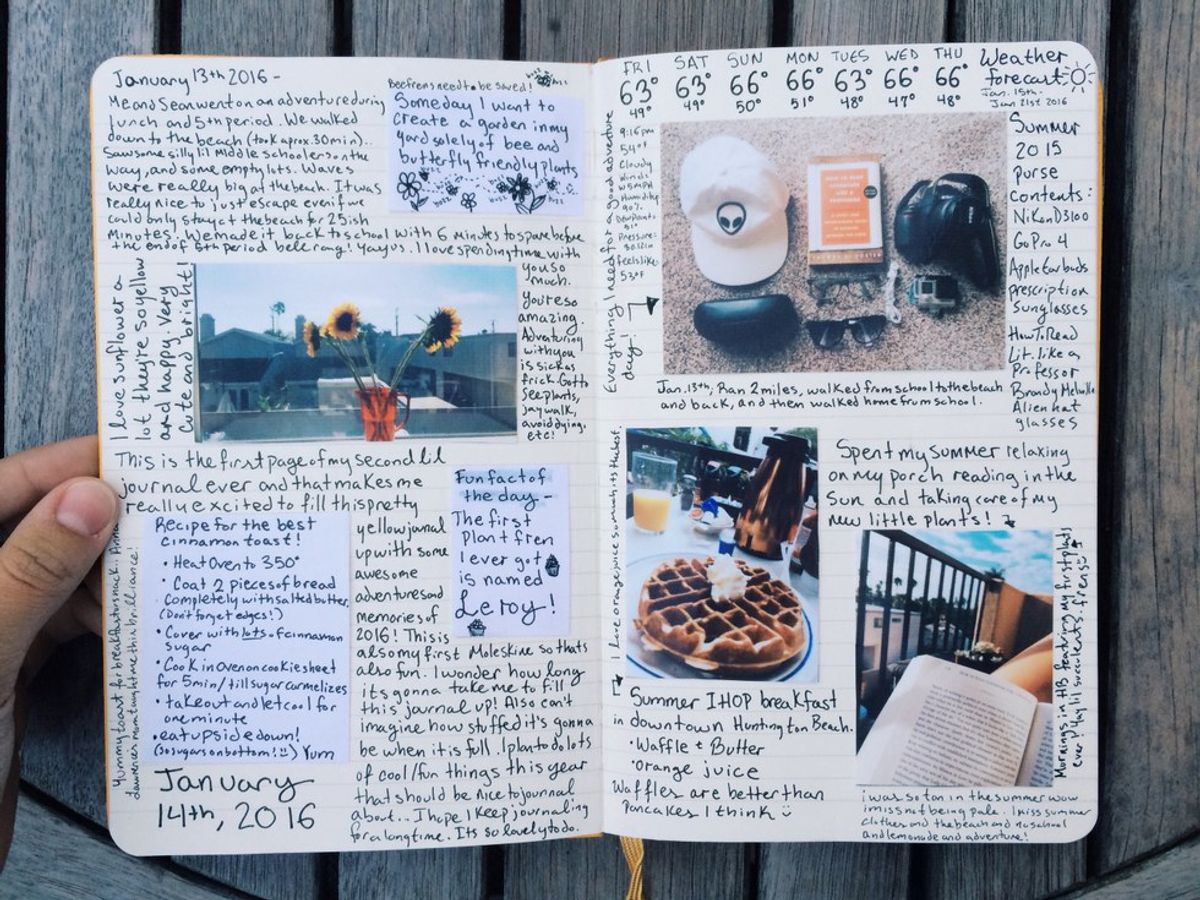 January 13th 2016 -
Me and Sean went on an adventure during
lunch and 5th period. We walked
down to the beach (took aprox. 30 min)..
Saw some silly lil middle schoolers on the
way, and some empty lots. Waves
were really big at the beach. It was
really nice to just escape even if we
could only stay at the beach for 25ish
minutes! We made it back to school with 6 minutes to spare before
the end of 5th period bell rang! Yay us. I love spending time with
you so
much.
You're so
amazing.
Adventuring
with you
is sick as
frick. Got to
see plants,
jaywalk,
avoid dying,
etc!
Bee frens need to be saved!
Someday I want to
create a garden in my
yard solely of bee and
butterfly friendly plants
I love sunflower a
lot they're so yellow
and happy. Very
cute and bright!
This is the first page of my second lil
journal ever and that makes me
really excited to fill this pretty
yellow jounal
up with some
awesome
adventures and
memories of
2016! This is
also my first Moleskine so thats
also fun. I wonder how long
its gonna take me to fill
this journal up! Also can't
imagine how stuffed it's gonna
be when it is full. I plan to do lots
of cool/fun things this year
that should be nice to journal
about.. I hope I keep journaling
for a long time. Its so lovely to do.
Fun fact of
the day -
The first
plant fren
I ever got
is named
Leroy!
Recipe for the best
cinnamon toast!
• Heat Oven to 350°
• Coat 2 pieces of bread
completely with salted butter.
(Don't forget edges!)
• Cover with lots of cinnamon
sugar
• Cook in oven on cookie sheet
for 5 min / till sugar carmelizes
• take out and let cool for
one minute
• eat upside down!
(so sugars on bottom! :) Yum
Yummy toast for breakfast
mom taught me this brilliance!
January
14th, 2016
FRI SAT SUN MON TUES WED THU
63° 63° 66° 66° 63° 66° 66°
49° 49° 50° 51° 48° 47° 48°
Weather
forecast
Jan. 15th -
Jan 21st 2016
9:16 pm
54°F
Cloudy
Wind:
W 5 MPH
Humidity:
90%
Dew Point:
51°
Pressure:
feels like:
53°F
Everything I need for a good adventure
day!
Summer
2015
purse
contents:
Nikon D3100
GoPro 4
Apple Earbuds
prescription
sunglasses
How To Read
Lit. like a
Professor
Brandy Melville
Alien hat
glasses
HOW TO READ
LITERATURE
LIKE A
PROFESSOR
Jan. 13th, Ran 2 miles, walked from school to the beach
and back, and then walked home from school.
I love orange juice so much it's the best.
Spent my summer relaxing
on my porch reading in the
sun and taking care of my
new little plants!
Summer IHOP breakfast
in downtown Huntington Beach.
• Waffle + Butter
• Orange juice
Waffles are better than
pancakes I think
Mornings in HB featuring my first plants
ever! Yay lil succulents frens!
i was so tan in the summer wow
i miss not being pale. I miss summer
clothes and the beach and no school
and lemonade and adventure!